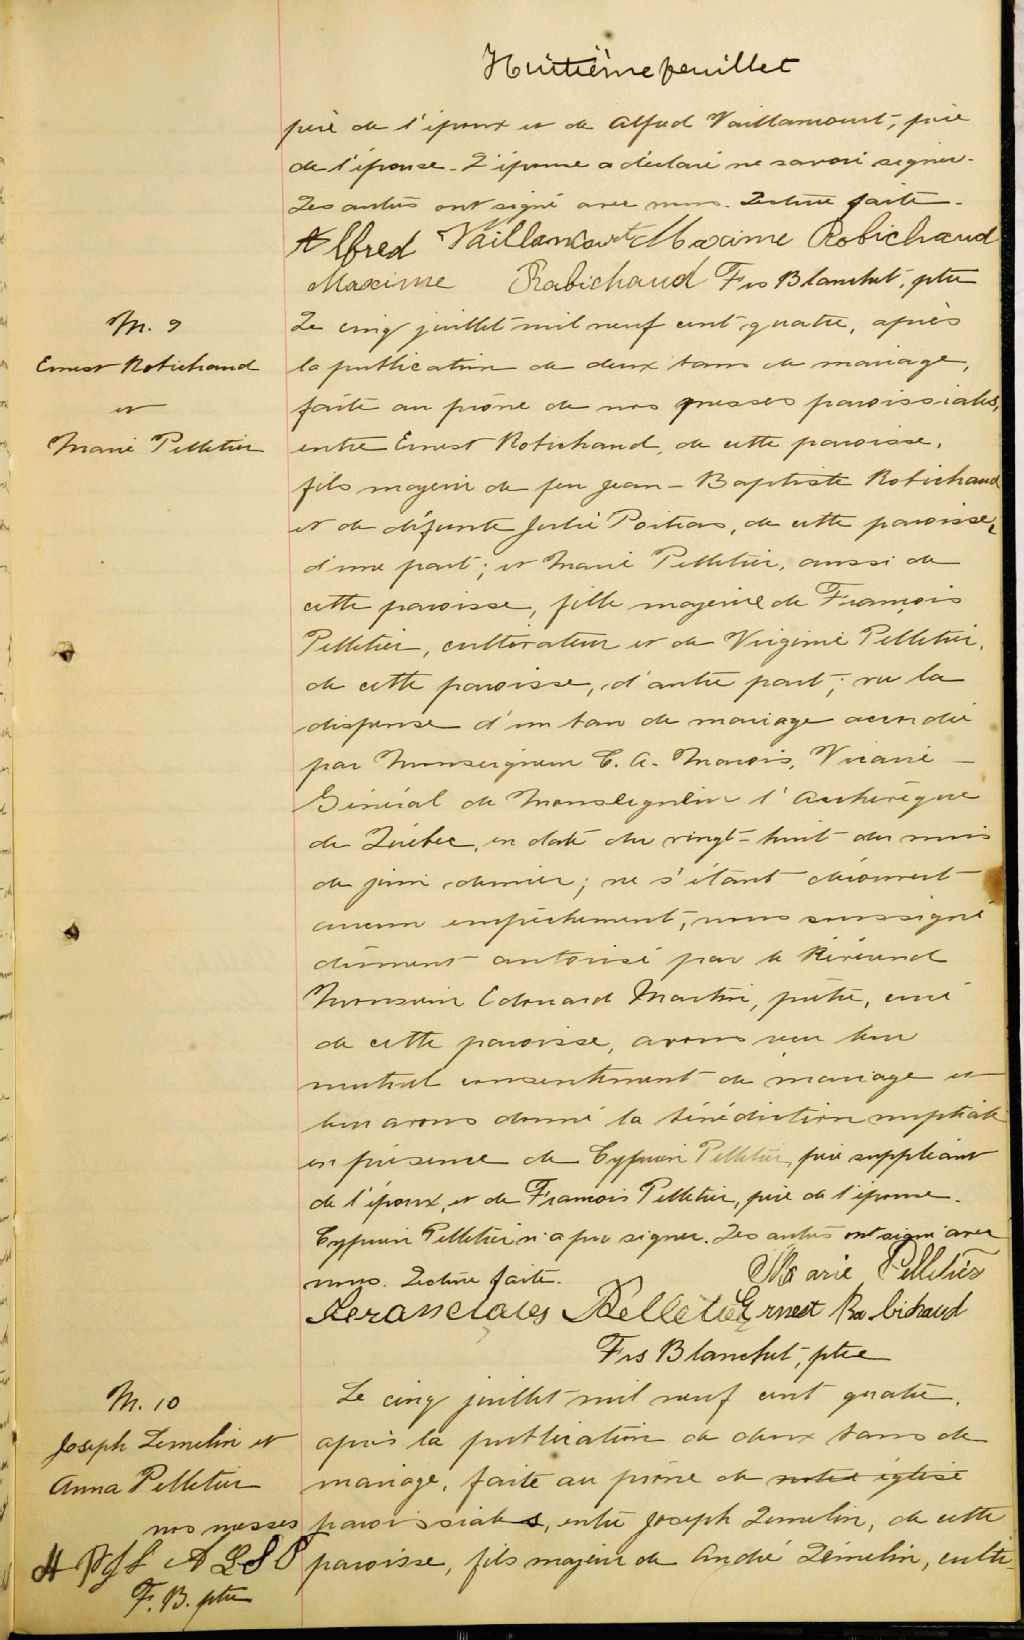 Huitième feuillet
père de l'époux et de Alfred Vaillancourt, père
de l'épouse. L'épouse a déclaré ne savoir signer.
Les autres ont signé avec nous. Lecture faite.
Alfred Vaillancourt Maxime Robichaud
Maxime Rabichaud Frs Blanchet, ptre
M. 9
Ernest Robichaud
et
Marie Pelletier
Le cinq juillet mil neuf cent quatre, après
la publication de deux bans de mariage,
faite au prône de nos messes paroissiales,
entre Ernest Robichaud, de cette paroisse,
fils majeur de feu Jean-Baptiste Robichaud
et de défunte Julie Poitras, de cette paroisse,
d'une part; et Marie Pelletier, aussi de
cette paroisse, fille majeure de François
Pelletier, cultivateur et de Virginie Pelletier,
de cette paroisse, d'autre part; vu la
dispense d'un ban de mariage accordée
par Monseigneur C. A. Marois, Vicaire-
Général de Monseigneur l'Archevêque
de Québec, en date du vingt-huit du mois
de juin dernier; ne s'étant découvert
aucun empêchement, nous soussigné
dûment autorisé par le Révérend
Monsieur Edouard Martin, prêtre, curé
de cette paroisse, avons reçu leur
mutuel consentement de mariage et
leur avons donné la bénédiction nuptiale
en présence de Cyprien Pelletier, père suppléant
de l'époux, et de François Pelletier, père de l'épouse.
Cyprien Pelletier n'a pu signer. Les autres ont signé avec
nous. Lecture faite. Marie Pelletier
Pelletier Ernest Rabichaud
Frs Blanchet, ptre
M. 10
Joseph Lemelin et
Anna Pelletier
Le cinq juillet mil neuf cent quatre,
après la publication de deux bans de
mariage, faite au prône de notre église
nos messes paroissiales, entre Joseph Lemelin, de cette
paroisse, fils majeur de André Lemelin, culti-
F. B. ptre